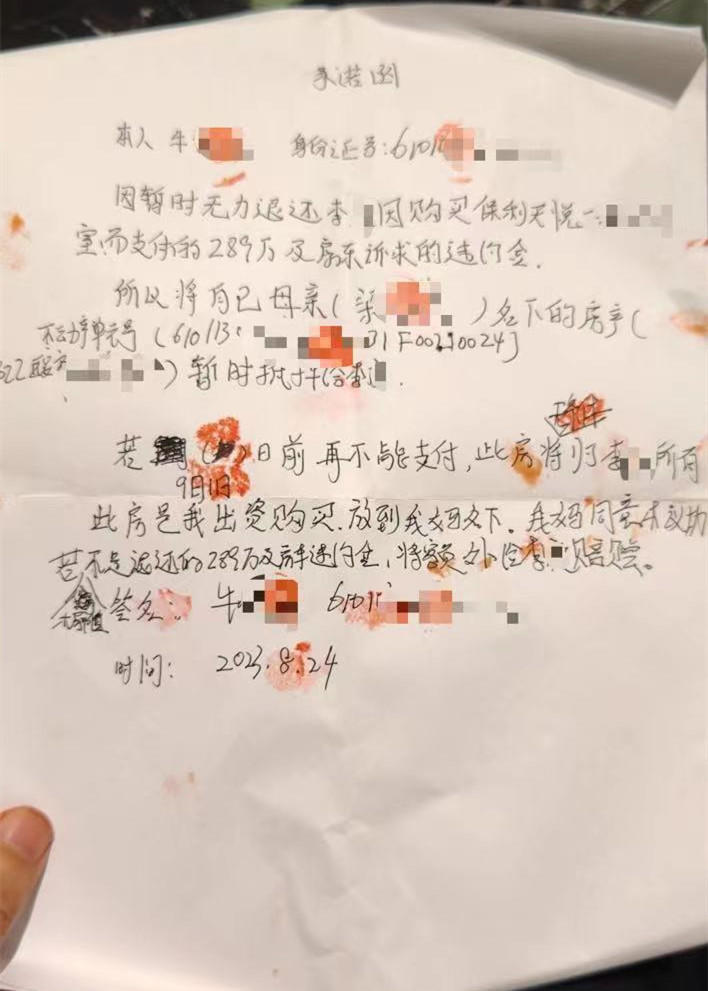 承诺函
本人 牛 身份证号:610
因暂时无力退还李 因购买保利天悦一
室而支付的289万及房东诉求的违约金.
所以将自己母亲( )名下的房产(
不动产单元号(610113 F00210024]
)暂时抵押给李 .
若 ( )日前再不能支付,此房将归李 所有
9月1日
此房是我出资购买.放到我妈名下.我妈同意未
若不足退还的289万及房东违约金,将额外给李 赔赏。
签名: 牛 6101
时间: 2023.8.24